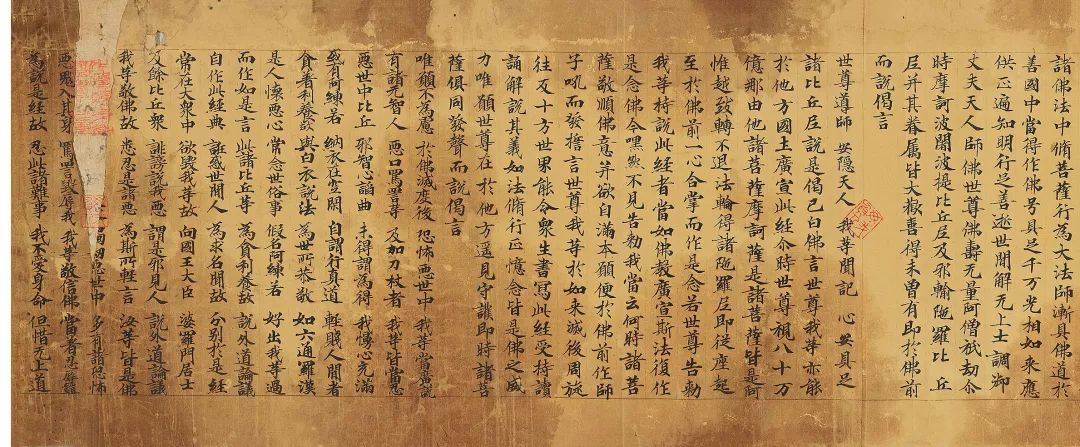 諸佛法中脩菩薩行為大法師漸具佛道於
善國中當得作佛号具足千万光相如來應
供正遍知明行之善逝世間解无上士調御
丈夫天人師佛世尊佛壽无量阿僧祇劫尒
時摩訶波闍波提比丘尼及耶輸陁羅比丘
尼并其眷属皆大歡喜得未曽有即於佛前
而說偈言
世尊導師 安隱天人 我等聞記 心安具足
諸比丘尼說是偈已白佛言世尊我等亦能
於他方國土廣宣此經尒時世尊視八十万
億那由他諸菩薩摩訶薩是諸菩薩皆是阿
惟越致轉不退法輪得諸陁羅尼即從座起
至於佛前一心合掌而作是念若世尊告勅
我等持說此經者當如佛教廣宣斯法復作
是念佛今嘿然不見告勅我當云何時諸菩
薩敬順佛意并欲自滿本願便於佛前作師
子吼而發誓言世尊我等於如來滅後周旋
往及十方世界能令眾生書寫此經受持讀
誦解說其義如法脩行正憶念皆是佛之威
力唯願世尊在於他方遥見守護即時諸菩
薩俱同發聲而說偈言
唯願不為慮 於佛滅度後 恐怖惡世中 我等當廣說
有諸无智人 惡口罵詈等 及加刀杖者 我等皆當忍
惡世中比丘 邪智心諂曲 未得謂為得 我慢心充滿
或有阿練若 納衣在空閑 自謂行真道 輕賤人間者
貪著利養故 與白衣說法 為世所恭敬 如六通羅漢
是人懷惡心 常念世俗事 假名阿練若 好出我等過
而作如是言 此諸比丘等 為貪利養故 說外道論議
自作此經典 誑惑世間人 為求名聞故 分別於是經
常在大眾中 欲毀我等故 向國王大臣 婆羅門居士
及餘比丘眾 誹謗說我惡 謂是邪見人 說外道論議
我等敬佛故 悉忍是諸惡 為斯所輕言 汝等皆是佛
惡世中 多有諸恐怖
惡鬼入其身 罵詈毀辱我 我等敬信佛 當著忍辱鎧
為說是經故 忍此諸難事 我不愛身命 但惜无上道